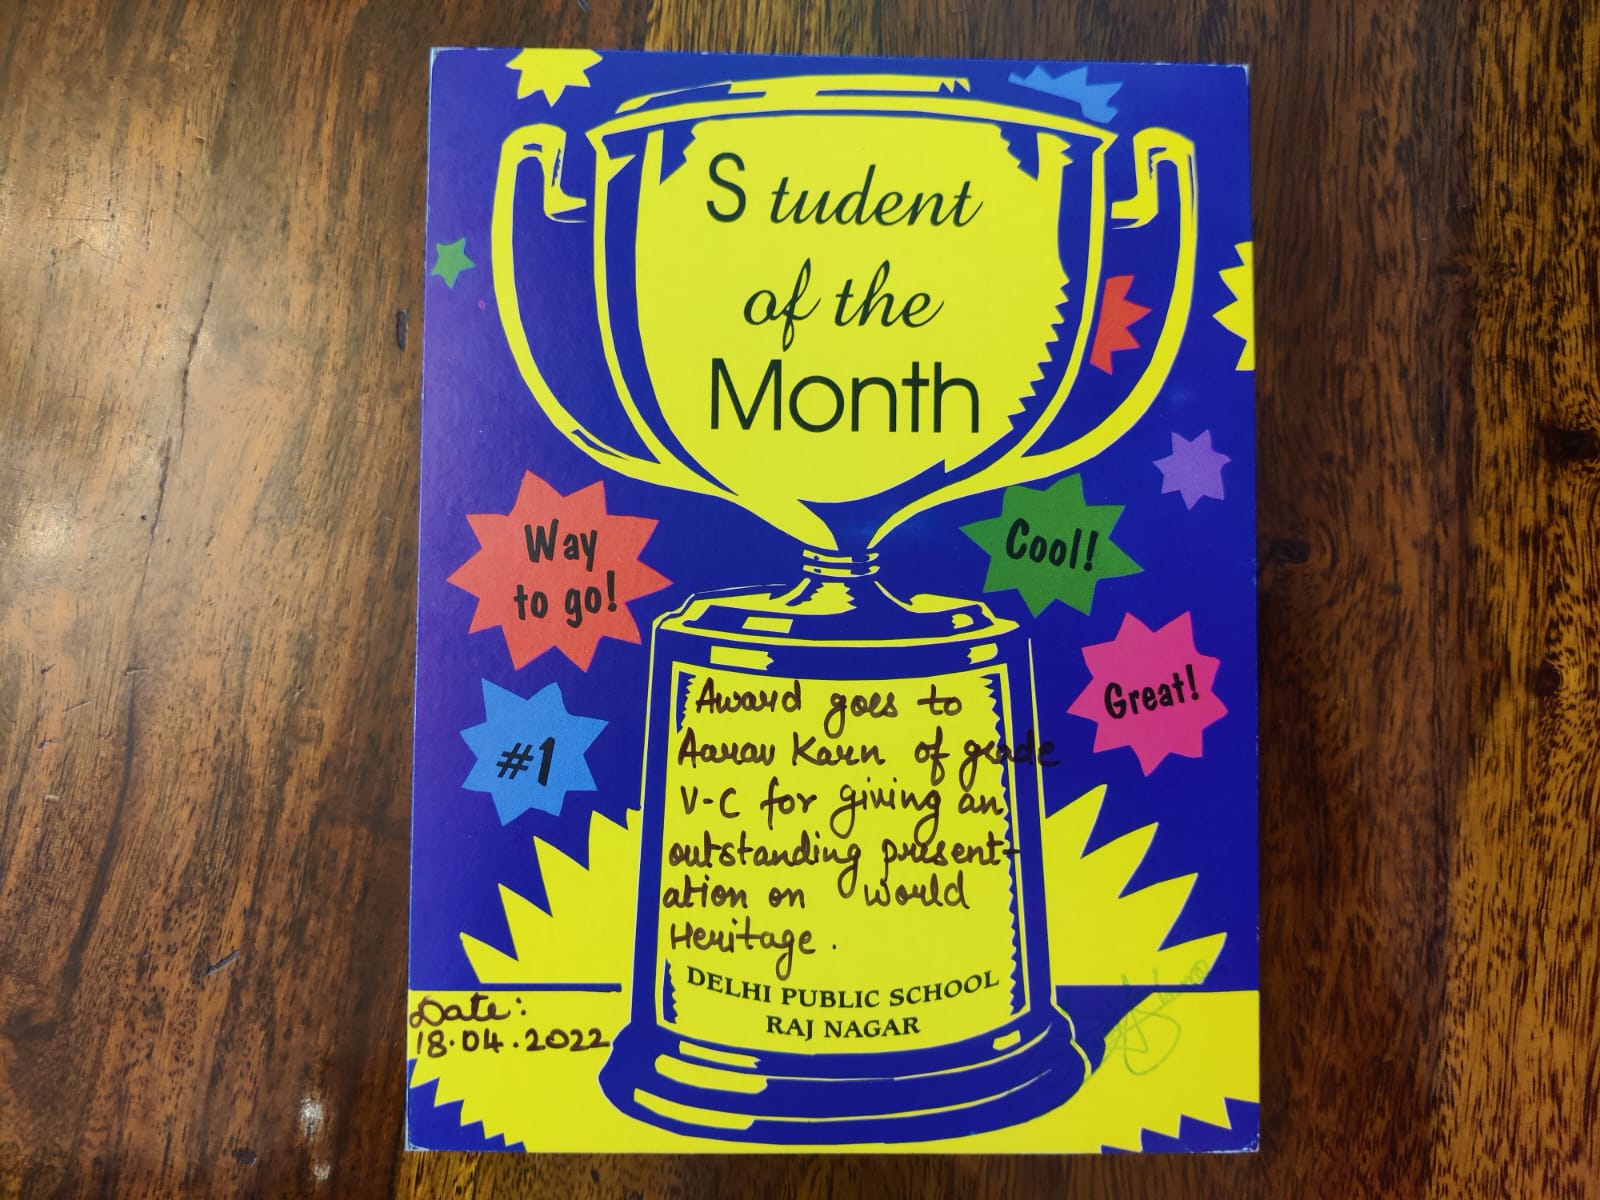 Student
of the
Month
Way
to go!
Cool!
Great!
#1
Award goes to
Aarav Karn of grade
V-C for giving an
outstanding present-
ation on world
Heritage.
DELHI PUBLIC SCHOOL
RAJ NAGAR
Date:
18.04.2022